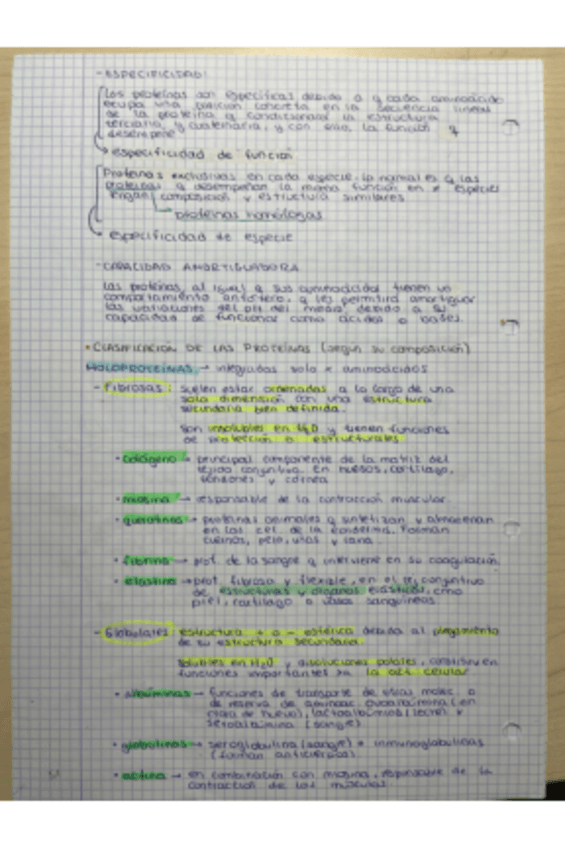 - ESPECIFICIDAD:
Las proteínas son específicas debido a q cada aminoácido
ocupa una posición concreta en la secuencia lineal
de la proteína q condicionará la estructura
terciaria y cuaternaria, y con ello, la función q
desempeñe
→ especificidad de función
Proteínas exclusivas en cada especie. Lo normal es q las
proteínas q desempeñan la misma función en ≠ especies
tengan composición y estructura similares
proteínas homólogas
especificidad de especie
- CAPACIDAD AMORTIGUADORA
Las proteínas, al igual q sus aminoácidos tienen un
comportamiento anfótero, q les permitirá amortiguar
las variaciones del pH del medio debido a su
capacidad de funcionar como ácidos o bases.
• CLASIFICACIÓN DE LAS PROTEÍNAS (según su composición)
HOLOPROTEÍNAS → integradas solo x aminoácidos
- Fibrosas: suelen estar ordenadas a lo largo de una
sola dimensión con una estructura
secundaria bien definida.
Son insolubles en H2O y tienen funciones
de protección o estructurales
• Colágeno → principal componente de la matriz del
tejido conjuntivo. En huesos, cartílago,
tendones y córnea
• miosina → responsable de la contracción muscular
• queratinas → proteínas animales q sintetizan y almacenan
en las cél. de la epidermis. Forman
cuernos, pelo, uñas y lana
• fibrina → prot. de la sangre q interviene en su coagulación.
• elastina → prot. fibrosa y flexible, en el tej conjuntivo
de estructuras y órganos elásticos, como
piel, cartílago o vasos sanguíneos
- Globulares: estructura + o - esférica debida al plegamiento
de su estructura secundaria.
Solubles en H2O y disoluciones polares, constituyen
funciones importantes en la act celular
• albúminas → funciones de transporte de otras molec. o
de reserva de aminoac. Ovoalbúmina (en
clara de huevo), lactoalbúmina (leche) y
seroalbúmina (sangre)
• globulinas → seroglobulina (sangre) e inmunoglobulinas
(forman anticuerpos)
• actina → en combinación con miosina, responsable de la
contracción de los músculos